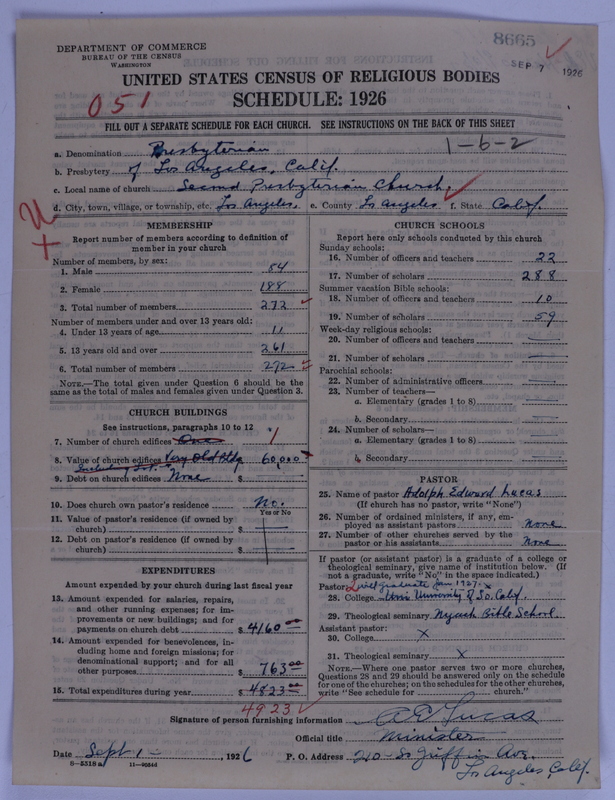 8665
SEP 7 1926
DEPARTMENT OF COMMERCE
BUREAU OF THE CENSUS
WASHINGTON
UNITED STATES CENSUS OF RELIGIOUS BODIES
SCHEDULE: 1926
051
FILL OUT A SEPARATE SCHEDULE FOR EACH CHURCH. SEE INSTRUCTIONS ON THE BACK OF THIS SHEET
1-6-2
a. Denomination Presbyterian
b. Presbytery of Los Angeles, Calif.
c. Local name of church Second Presbyterian Church,
d. City, town, village, or township, etc. Los Angeles. e. County Los Angeles f. State Calif.
MEMBERSHIP
Report number of members according to definition of member in your church
Number of members, by sex:
1. Male 84
2. Female 188
3. Total number of members 272
Number of members under and over 13 years old:
4. Under 13 years of age 11
5. 13 years old and over 261
6. Total number of members 272
NOTE.—The total given under Question 6 should be the same as the total of males and females given under Question 3.
CHURCH BUILDINGS
See instructions, paragraphs 10 to 12
7. Number of church edifices One 1
8. Value of church edifices Very Old Bldg 60,000
Including Lot.
9. Debt on church edifices None $
10. Does church own pastor's residence No.
Yes or No
11. Value of pastor's residence (if owned by church) $
12. Debt on pastor's residence (if owned by church) $
EXPENDITURES
Amount expended by your church during last fiscal year
13. Amount expended for salaries, repairs, and other running expenses; for improvements or new buildings; and for payments on church debt $ 4160 00
14. Amount expended for benevolences, including home and foreign missions; for denominational support; and for all other purposes $ 763 00
15. Total expenditures during year $ 4823 00
4923
CHURCH SCHOOLS
Report here only schools conducted by this church
Sunday schools:
16. Number of officers and teachers 22
17. Number of scholars 288
Summer vacation Bible schools:
18. Number of officers and teachers 10
19. Number of scholars 59
Week-day religious schools:
20. Number of officers and teachers —
21. Number of scholars —
Parochial schools:
22. Number of administrative officers —
23. Number of teachers—
a. Elementary (grades 1 to 8) —
b. Secondary —
24. Number of scholars—
a. Elementary (grades 1 to 8) —
b. Secondary —
PASTOR
25. Name of pastor Adolph Edward Lucas
(If church has no pastor, write "None")
26. Number of ordained ministers, if any, employed as assistant pastors None
27. Number of other churches served by the pastor or his assistants None
If pastor (or assistant pastor) is a graduate of a college or theological seminary, give name of institution below. (If not a graduate, write "No" in the space indicated.)
Pastor: will graduate Jan 1927. x
28. College University of So. Calif.
29. Theological seminary Nyack Bible School.
Assistant pastor:
30. College x
31. Theological seminary x
NOTE.—Where one pastor serves two or more churches, Questions 28 and 29 should be answered only on the schedule for one of the churches; on the schedules for the other churches, write "See schedule for church."
Signature of person furnishing information A E Lucas
Official title Minister
Date Sept 1, 1926 P. O. Address 210 So Griffin Ave.
Los Angeles, Calif.
8—5518a 11—9584d